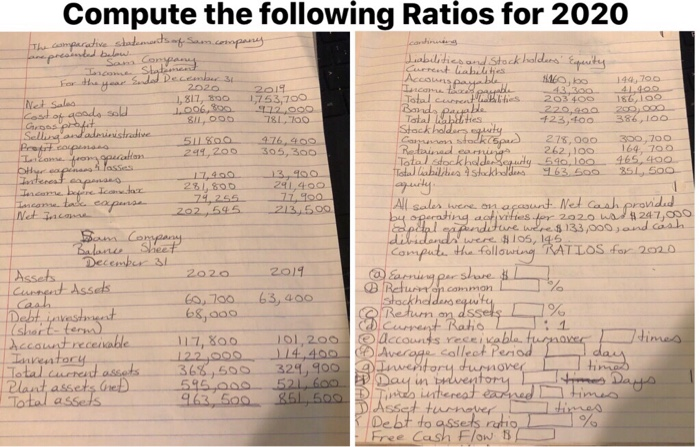 Compute the following Ratios for 2020
The comparative statements of Sam company
are presented below
Sam Company
Income Statement
For the year Ended December 31
2020 2019
Net Sales 1,817,800 1,753,700
Cost of goods sold 1,006,800 972,000
Gross profit 811,000 781,700
Selling and administrative
expenses 511,800 476,400
Income from operation 299,200 305,300
Other expenses & losses
Interest expenses 17,400 13,900
Income before Icome tax 281,800 291,400
Income tax expense 79,255 77,900
Net Income 202,545 213,500
Sam Company
Balance Sheet
December 31
Assets 2020 2019
Current Assets
Cash 60,700 63,400
Debt investment 68,000
(short-term)
Account receivable 117,800 101,200
Inventory 122,000 114,400
Total current assets 368,500 329,900
Plant assets (net) 595,000 521,600
Total assets 963,500 851,500
continuing
Liabilities and Stockholders' Equity
Current liabilities
Accouns payable $160,100 144,700
Income taxes payable 43,300 41,400
Total current liabilities 203,400 186,100
Bonds payable 220,000 200,000
Total liabilities 423,400 386,100
Stockholders equity
Common stock (5 par) 278,000 300,700
Retained earnings 262,100 164,700
Total stockholders equity 540,100 465,400
Total liabilities & stockholders 963,500 851,500
equity
All sales were on account. Net cash provided
by operating activities for 2020 was $247,000
capital expenditure were $133,000, and cash
dividends were $105,145
Compute the following RATIOS for 2020
(a) Earning per share $
(b) Return on common %
stockholders equity
(c) Return on assets %
(d) Current Ratio : 1
(e) accounts receivable turnover times
(f) Average collect Period day
(g) Inventory turnover times
(h) Day in inventory Days
(i) Times interest earned times
(j) Asset turnover times
Debt to assets ratio %
Free Cash Flow $